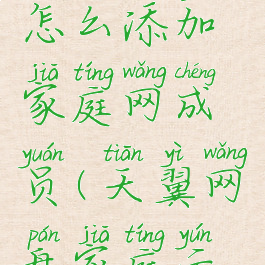 怎么添加
jiā tíng wǎng chéng
家庭网成
yuán tiān yì wǎng
员(天翼网
pán jiā tíng yún
盘家庭云